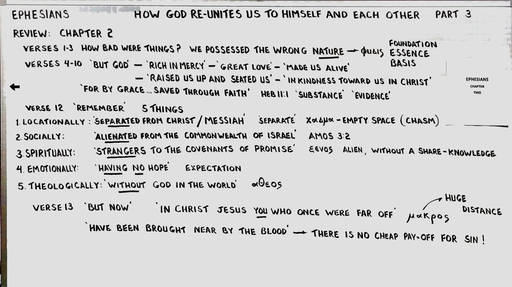 EPHESIANS HOW GOD RE-UNITES US TO HIMSELF AND EACH OTHER PART 3
REVIEW: CHAPTER 2
VERSES 1-3 HOW BAD WERE THINGS? WE POSSESSED THE WRONG NATURE → φυσις FOUNDATION
ESSENCE
BASIS
VERSES 4-10 'BUT GOD' - 'RICH IN MERCY' - 'GREAT LOVE' - 'MADE US ALIVE'
- 'RAISED US UP AND SEATED US' - 'IN KINDNESS TOWARD US IN CHRIST'
'FOR BY GRACE... SAVED THROUGH FAITH' HEB 11:1 'SUBSTANCE' 'EVIDENCE'
EPHESIANS
CHAPTER
TWO
VERSE 12 'REMEMBER' 5 THINGS
1. LOCATIONALLY: 'SEPARATED FROM CHRIST/MESSIAH' SEPARATE - EMPTY SPACE (CHASM)
2. SOCIALLY: 'ALIENATED FROM THE COMMONWEALTH OF ISRAEL' AMOS 3:2
3 SPIRITUALLY: 'STRANGERS TO THE COVENANTS OF PROMISE' ξενος ALIEN, WITHOUT A SHARE-KNOWLEDGE
4. EMOTIONALLY: 'HAVING NO HOPE' EXPECTATION
5. THEOLOGICALLY: 'WITHOUT GOD IN THE WORLD' αθεος
VERSE 13 'BUT NOW' 'IN CHRIST JESUS YOU WHO ONCE WERE FAR OFF' μακρος → HUGE
DISTANCE
'HAVE BEEN BROUGHT NEAR BY THE BLOOD' → THERE IS NO CHEAP PAY-OFF FOR SIN!